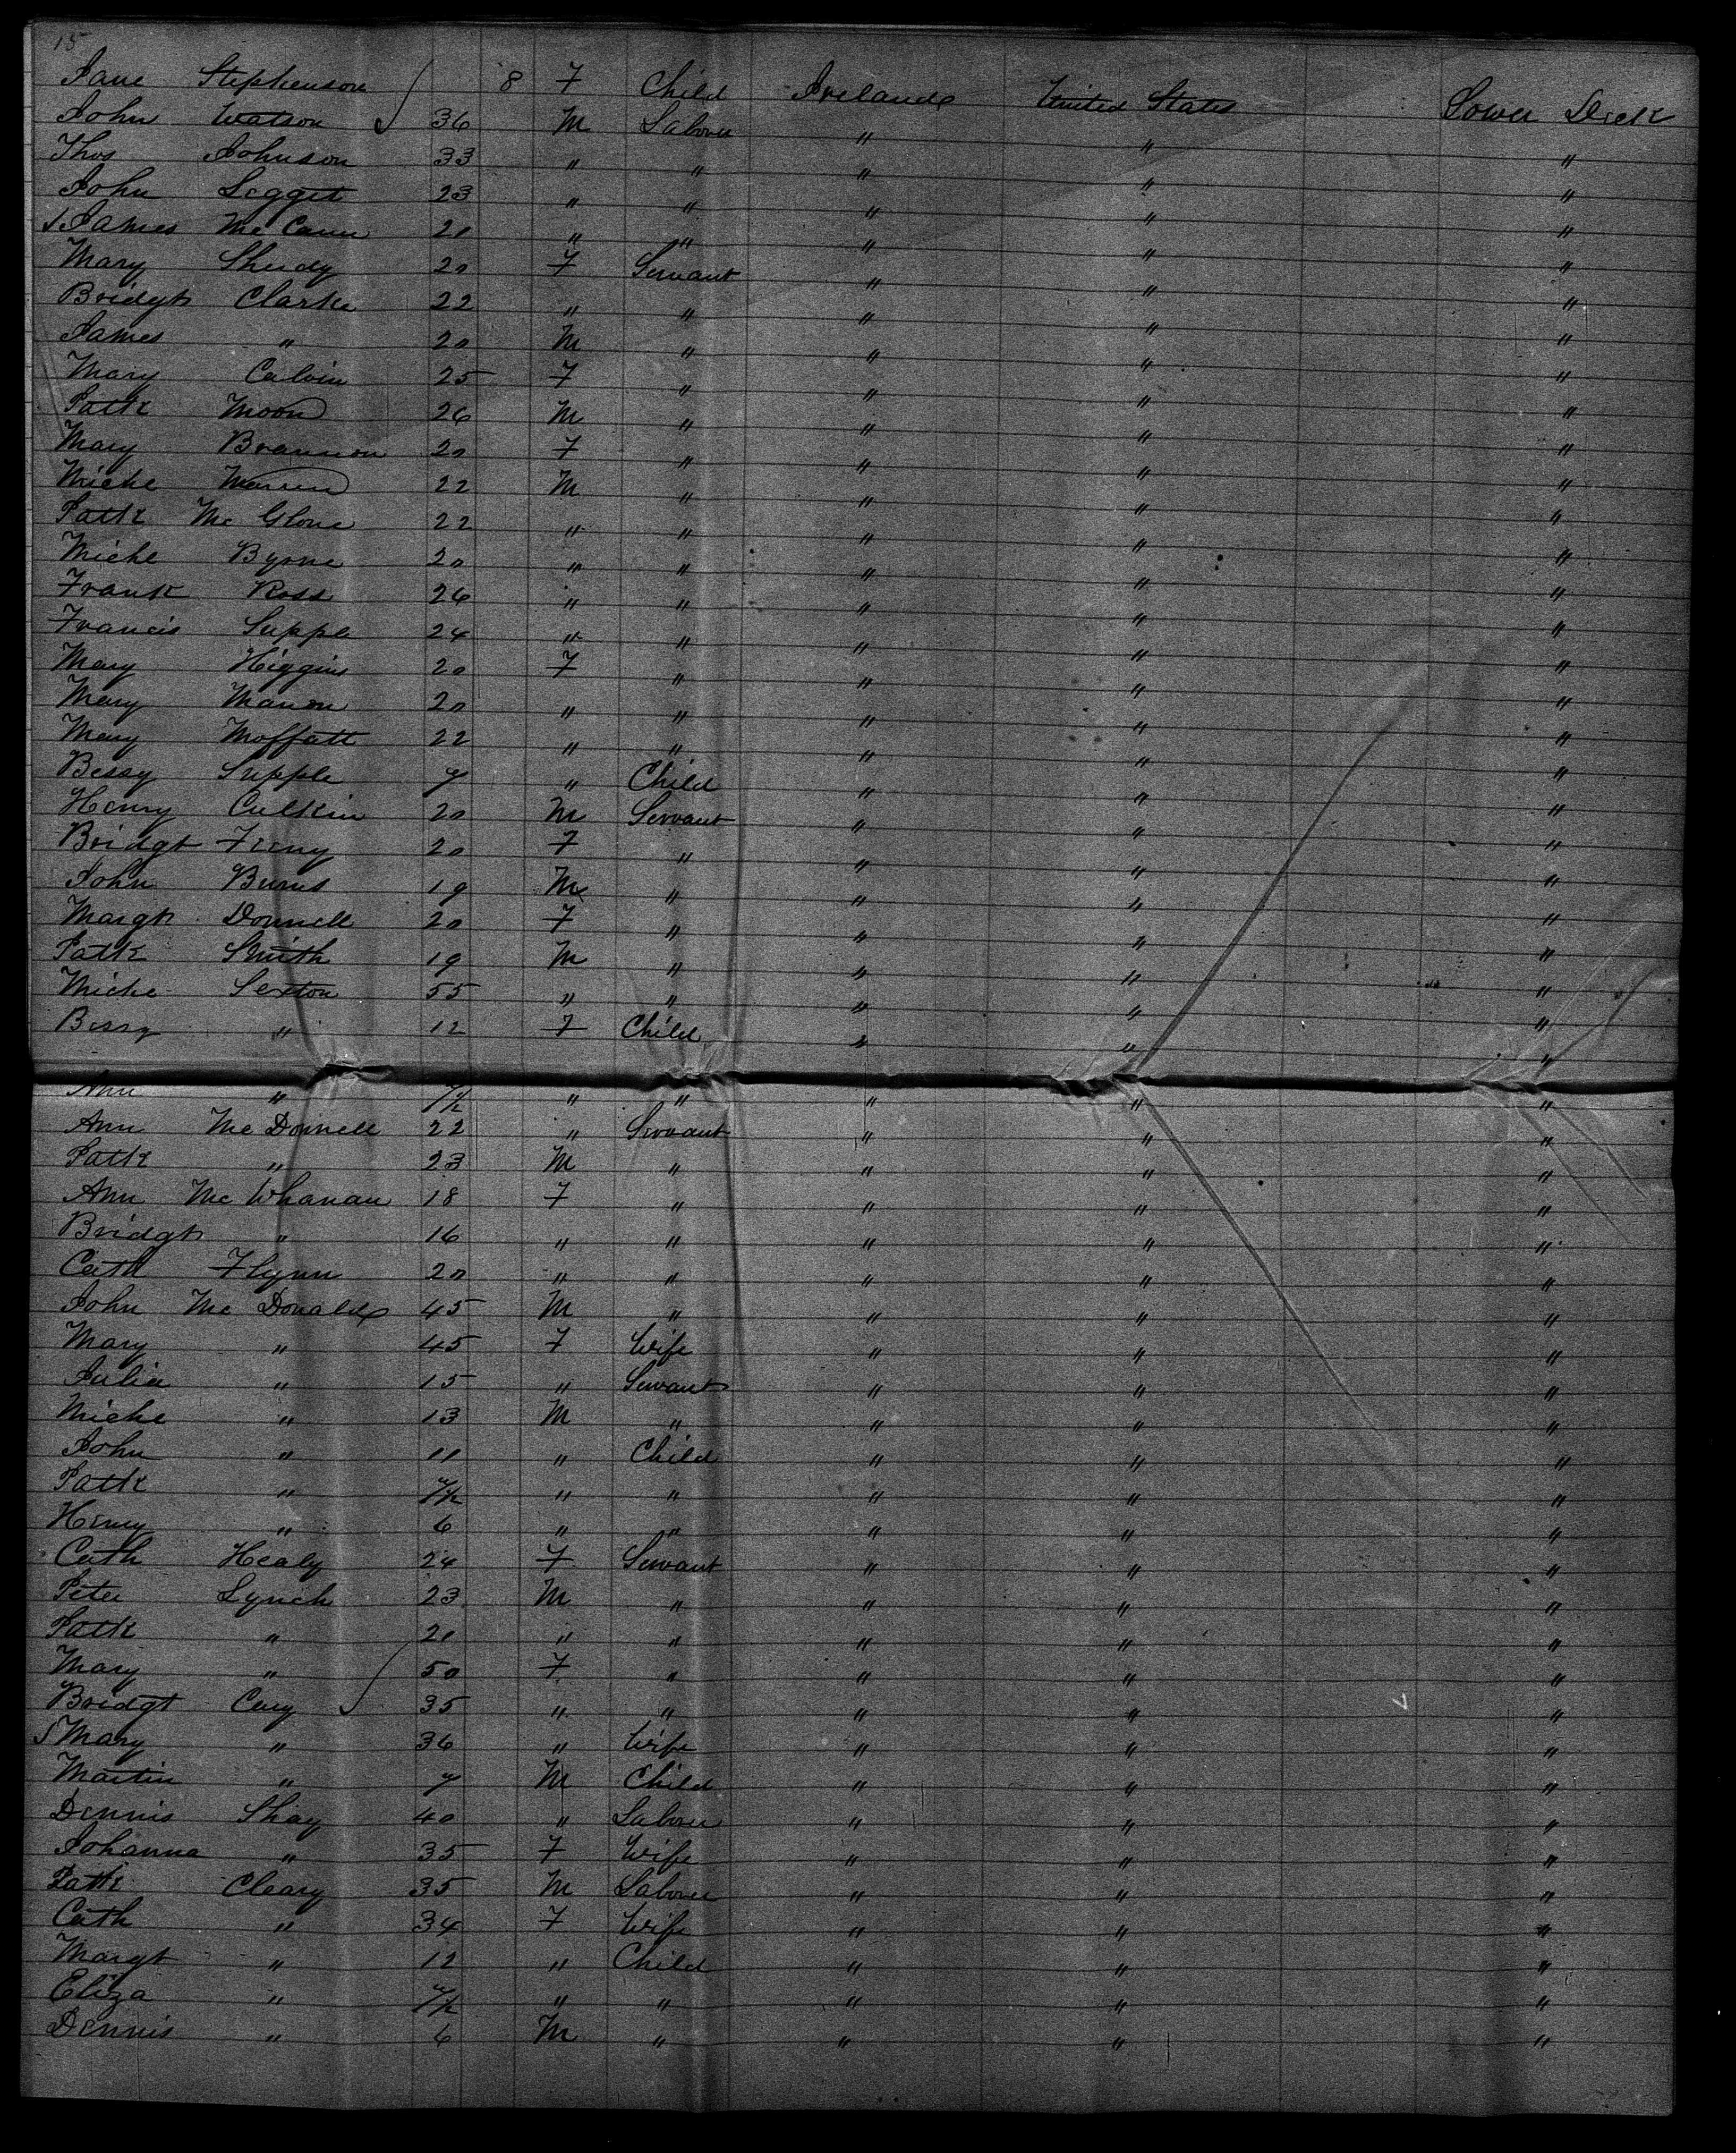 15
Jane Stephenson 8 F Child Ireland United States Lower Deck
John Watson 36 M Labour " " "
Thos Johnson 33 " " " " "
John Legget 23 " " " " "
James McCann 21 " " " " "
Mary Sheedy 20 F Servant " " "
Bridgt Clarke 22 " " " " "
James " 20 M " " " "
Mary Calvin 25 F " " " "
Patk Moon 26 M " " " "
Mary Brannon 20 F " " " "
Michl Warren 22 M " " " "
Patk Mc Glone 22 " " " " "
Michl Byrne 20 " " " " "
Frank Ross 26 " " " " "
Francis Supple 24 " " " " "
Mary Higgins 20 F " " " "
Mary Manon 20 " " " " "
Mary Moffatt 22 " " " " "
Bessy Supple 7 " Child " " "
Henry Culkin 20 M Servant " " "
Bridgt Feeny 20 F " " " "
John Burns 19 M " " " "
Margt Donnell 20 F " " " "
Patk Smith 19 M " " " "
Michl Sexton 55 " " " " "
Bessy " 12 F Child " " "
Ann " " " " " "
Ann Mc Donnell 22 " Servant " " "
Patk " 23 M " " " "
Ann Mc Whanan 18 F " " " "
Bridgt " 16 " " " " "
Cath Flynn 20 " " " " "
John Mc Donald 45 M " " " "
Mary " 45 F Wife " " "
Julia " 15 " Servant " " "
Michl " 13 M " " " "
John " 11 " Child " " "
Patk " " " " " "
Henry " 6 " " " " "
Cath Healy 24 F Servant " " "
Peter Lynch 23 M " " " "
Patk " 21 " " " " "
Mary " 50 F " " " "
Bridgt 35 " " " " "
Mary " 36 " Wife " " "
Martin " 7 M Child " " "
Dennis Shay 40 " Labour " " "
Johanna " 35 F Wife " " "
Patk Cleary 35 M Labour " " "
Cath " 34 F Wife " " "
Margt " 12 " Child " " "
Eliza " " " " " "
Dennis " 6 M " " " "